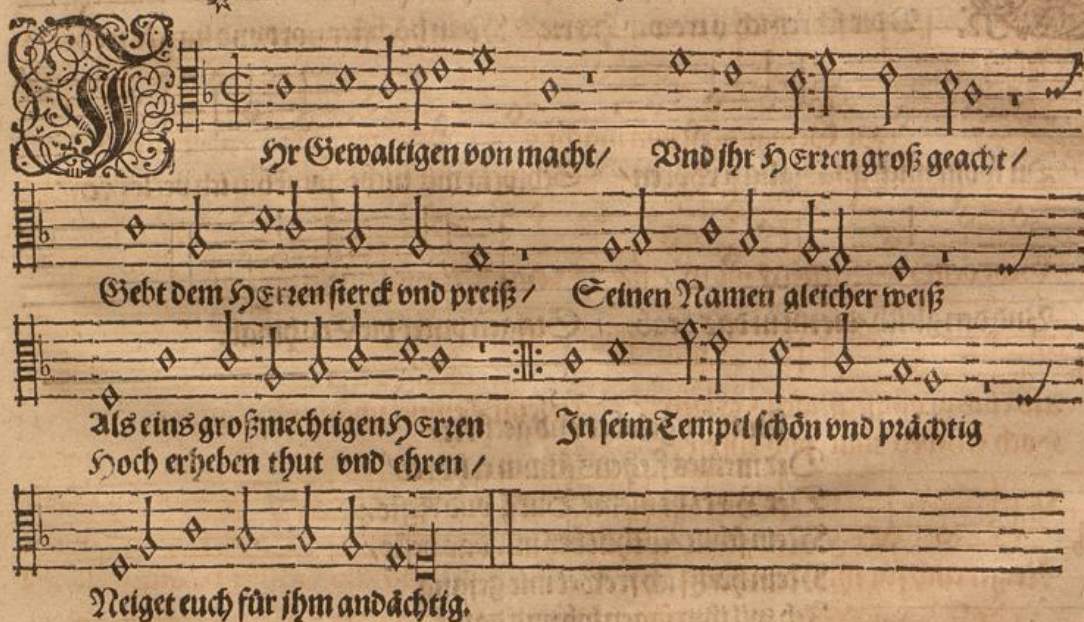 IHr Gewaltigen von macht/ Vnd jhr HErren groß geacht/
Gebt dem HErren sterck vnd preiß/ Seinen Namen gleicher weiß
Als eins großmechtigen HErren In seim Tempel schön vnd prächtig
Hoch erheben thut vnd ehren/
Neiget euch für jhm andächtig.